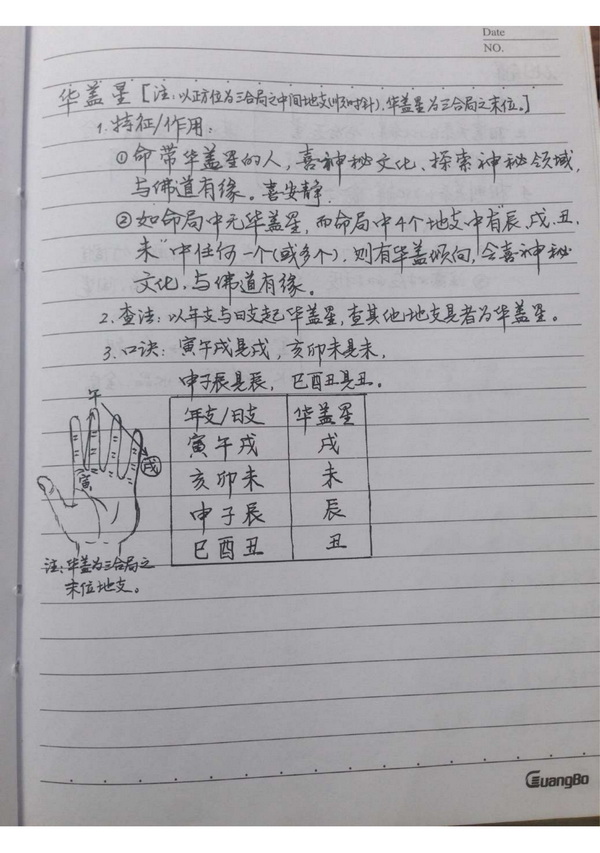 Date
NO.
华盖星[注:以正方位为三合局之中间地支(顺时针),华盖星为三合局之末位。]
1.特征/作用:
①命带华盖星的人,喜神秘文化、探索神秘领域,
与佛道有缘。喜安静.
②如命局中无华盖星,而命局中4个地支中有"辰、戌、丑、
未"中任何一个(或多个),则有华盖倾向,会喜神秘
文化,与佛道有缘。
2.查法:以年支与日支起华盖星,查其他地支见者为华盖星。
3.口诀:寅午戌见戌,亥卯未见未,
申子辰见辰,巳酉丑见丑。
年支/日支 华盖星
寅午戌 戌
亥卯未 未
申子辰 辰
巳酉丑 丑
午
寅
戌
注:华盖为三合局之
末位地支。
GuangBo